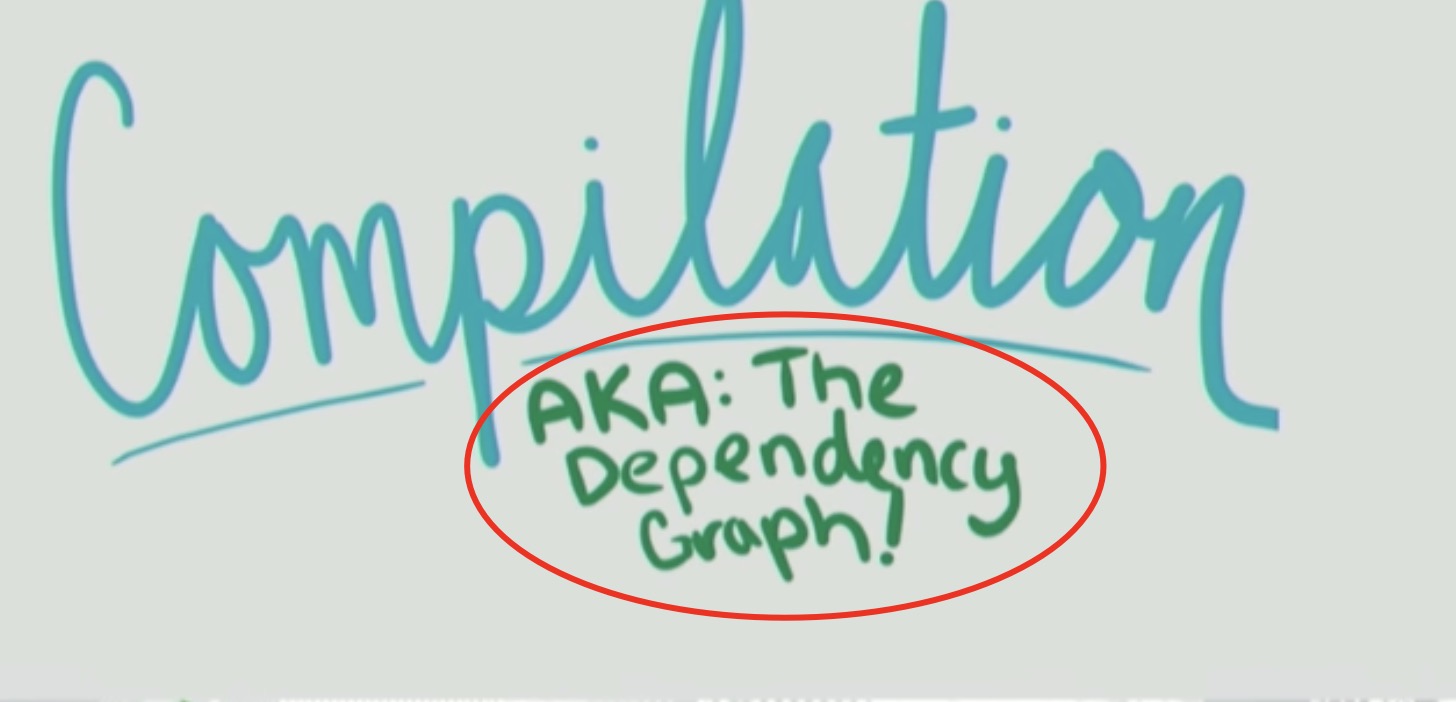 Compilation
AKA: The
Dependency
Graph!